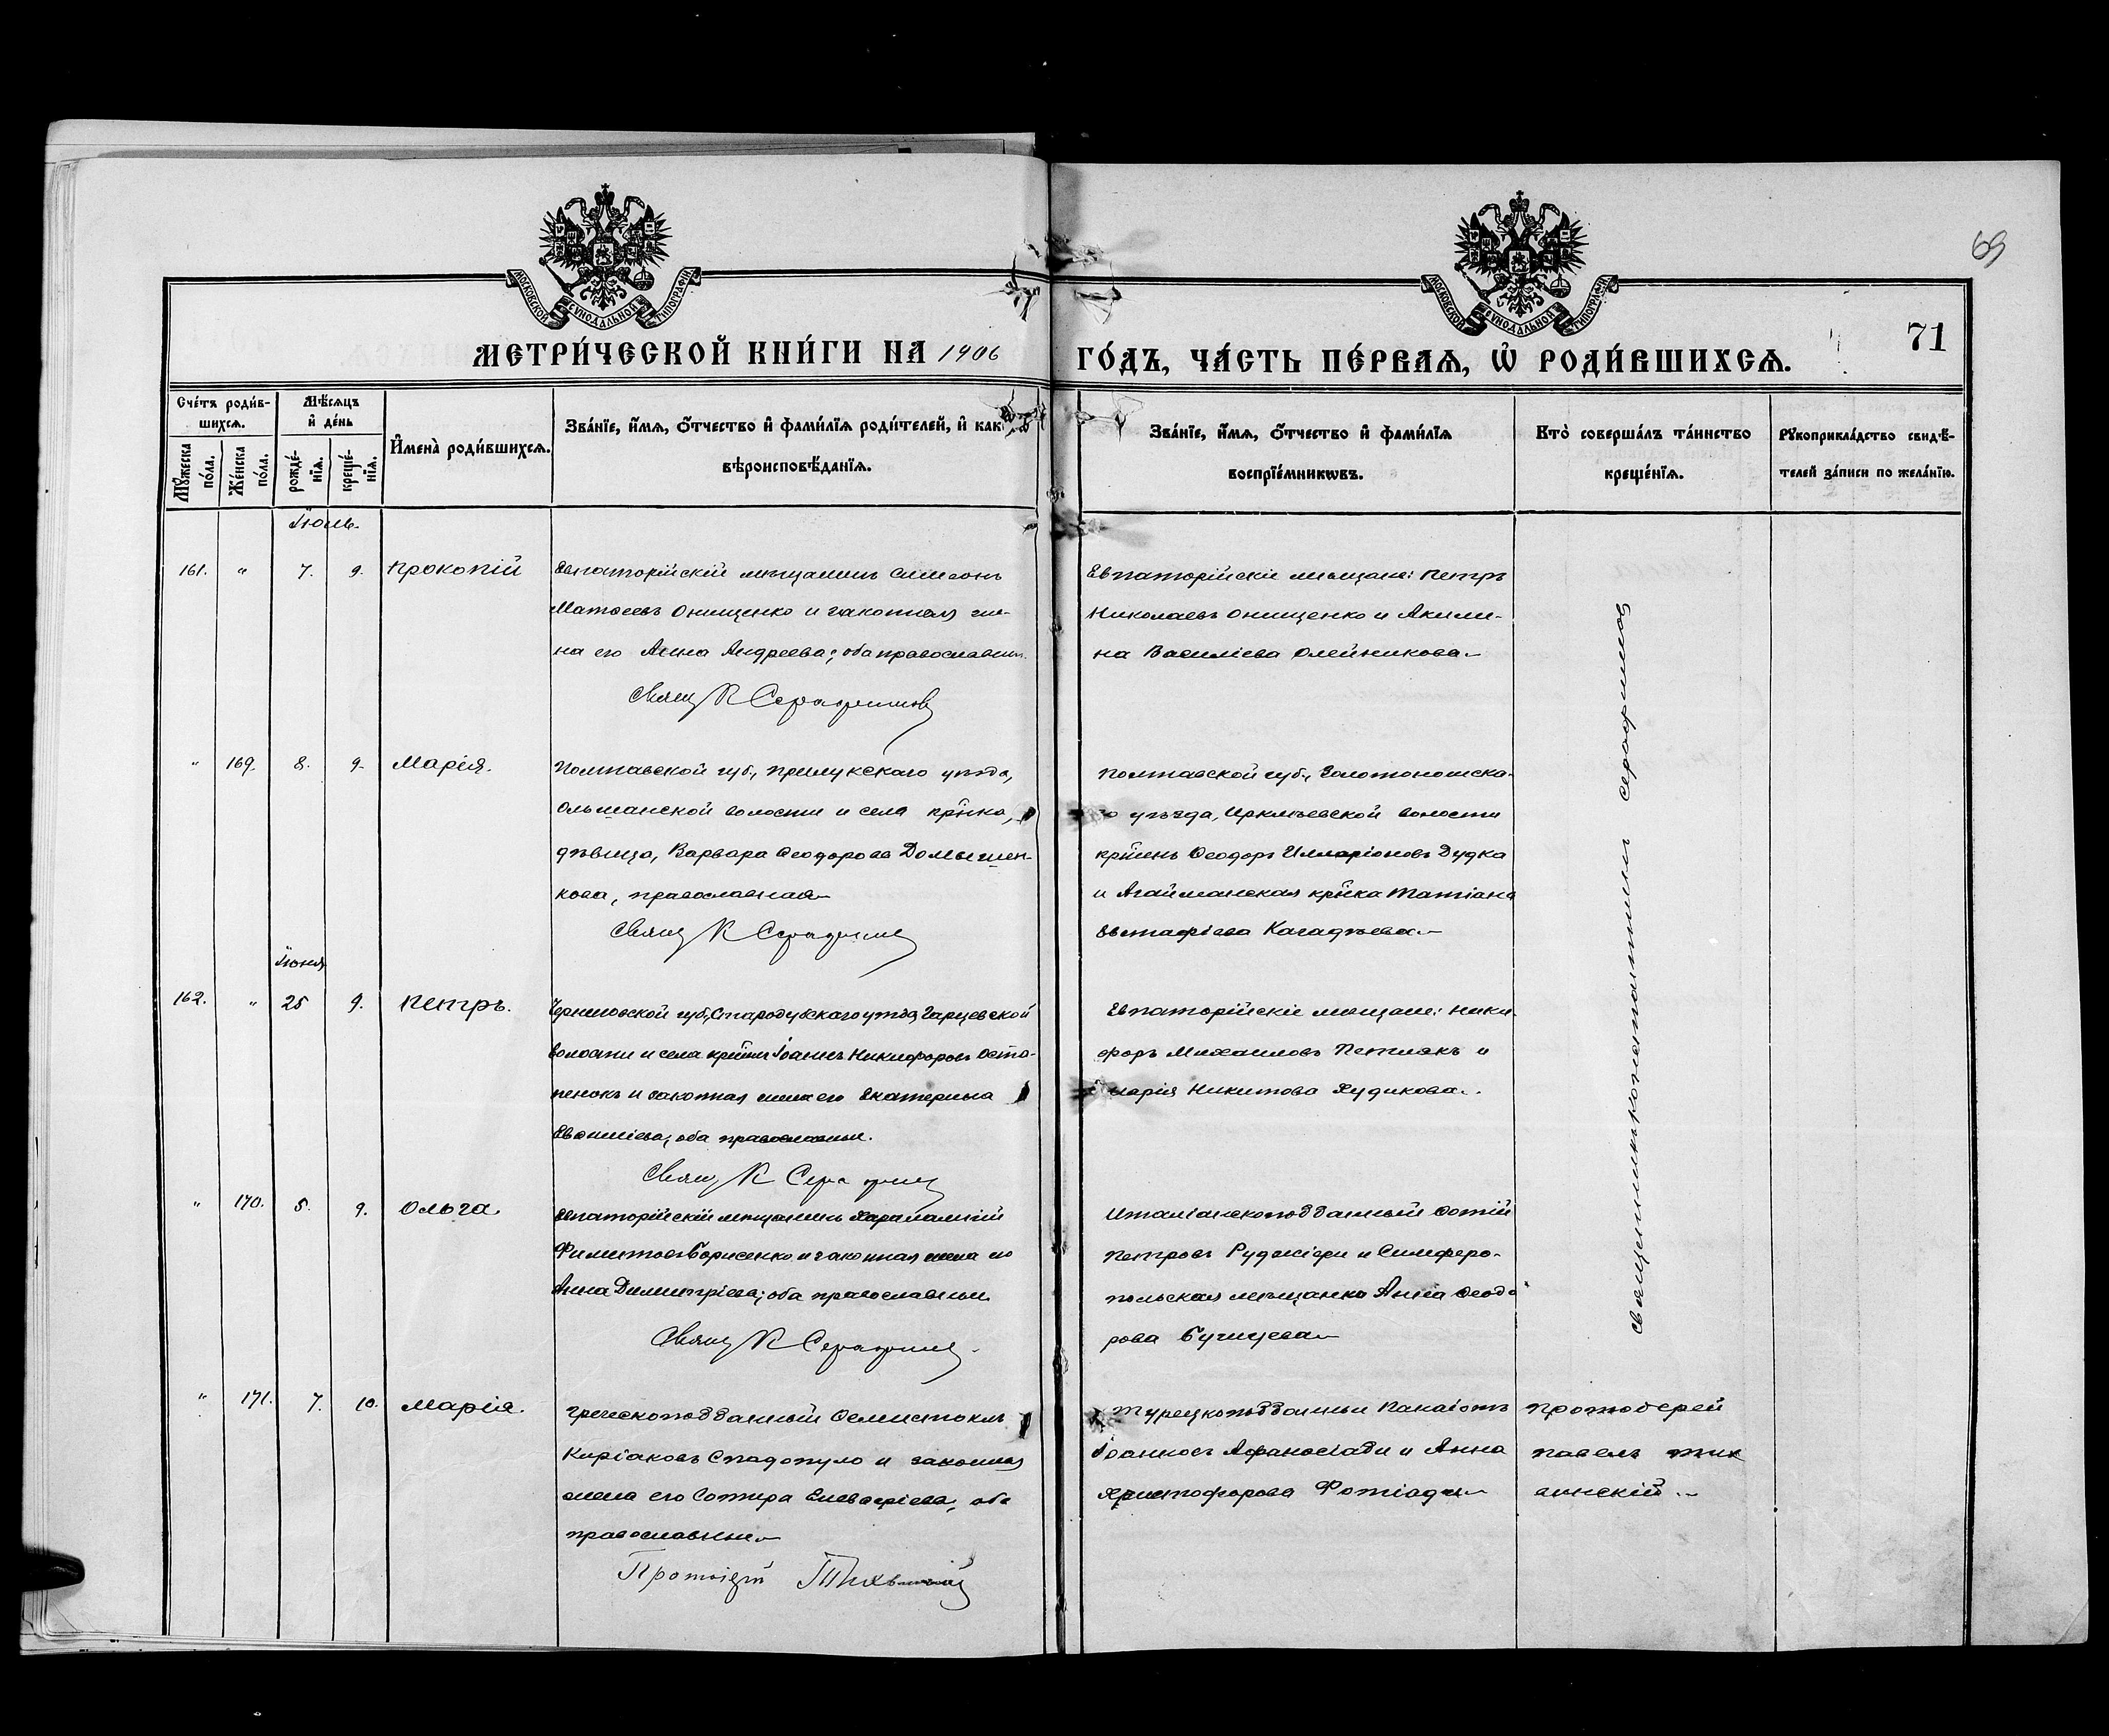 69
МОСКОВСКОЙ СѴНОДАЛЬНОЙ ТИПОГРАФІИ
МОСКОВСКОЙ СѴНОДАЛЬНОЙ ТИПОГРАФІИ
71
МЕТРИ́ЧЕСКОЙ КНИ́ГИ НА 1906
ГО́ДЪ, ЧА́СТЬ ПЕ́РВАѦ, Ѡ РОДИ́ВШИХСѦ.
Сче́тъ роди́в-
шихсѧ.
Мꙋ́жеска по́ла.
Же́нска по́ла.
Мѣ́сѧцъ и де́нь
рожде́-нїѧ.
креще́-нїѧ.
Имена̀ роди́вшихсѧ.
Зва́нїе, и́мѧ, о́тчество и фами́лїѧ роди́телей, и как
вѣроисповѣ́данїѧ.
Зва́нїе, и́мѧ, о́тчество и фами́лїѧ
воспрїе́мникѡвъ.
Кто̀ соверша́лъ та́инство
креще́нїѧ.
Рꙋкоприкла́дство свидѣ́-
телей за́писи по жела́нїю.
Іюль.
161. " 7. 9. Прокопій
Евпаторійскій мѣщанинъ Симеонъ
Матѳеевъ Онищенко и законная же-
на его Анна Андреева; оба православны.
Свящ К Серафимов
Евпаторійскіе мѣщане: Петръ
Николаевъ Онищенко и Акили-
на Василіева Олейникова.
" 169. 8. 9. Марія.
Полтавской губ., Прилукскаго уѣзда,
Ольшанской волости и села кр̃нка,
дѣвица, Варвара Ѳеодорова Домышен-
кова, православная
Свящ К Серафимов
Полтавской губ., Золотоношска-
го уѣзда, Ирклѣевской волости
кр̃нинъ Ѳеодоръ Илларіоновъ Дудка
и Агайманская кр̃нка Татіана
Евстафіева
Іюня
162. " 25 9. Петръ.
Черниговской губ., Стародубскаго уѣзда, Гарцевской
волости и села Іоаннъ Никифоровъ Осто-
пенокъ и законная жена его Екатерина
оба православные.
Свящ К Серафимов
Евпаторійскіе мѣщане: Ники-
форъ Михаиловъ и
Марія Никитова Худикова.
" 170. 5. 9. Ольга.
Евпаторійскій мѣщанинъ Харалампій
Филитовъ Борисенко и законная жена его
Анна Димитріева; оба православные
Свящ К Серафимов
Италіанскоподданный Фотій
Петровъ и Симферо-
польская мѣщанка Анна Ѳеодо
рова
Священникъ Константинъ Серафимов
" 171. 7. 10. Марія.
Греческоподданный Ѳемистоклъ
Киріаковъ Спадопуло и законная
жена его Сотира Елевѳеріева, оба
православные
Протоіерей Тихвинскій
Турецкоподданные Панаіотъ
Іоанновъ Афанасіади и Анна
Христофорова Фотіади
Протоіерей
Павелъ Тих
винскій